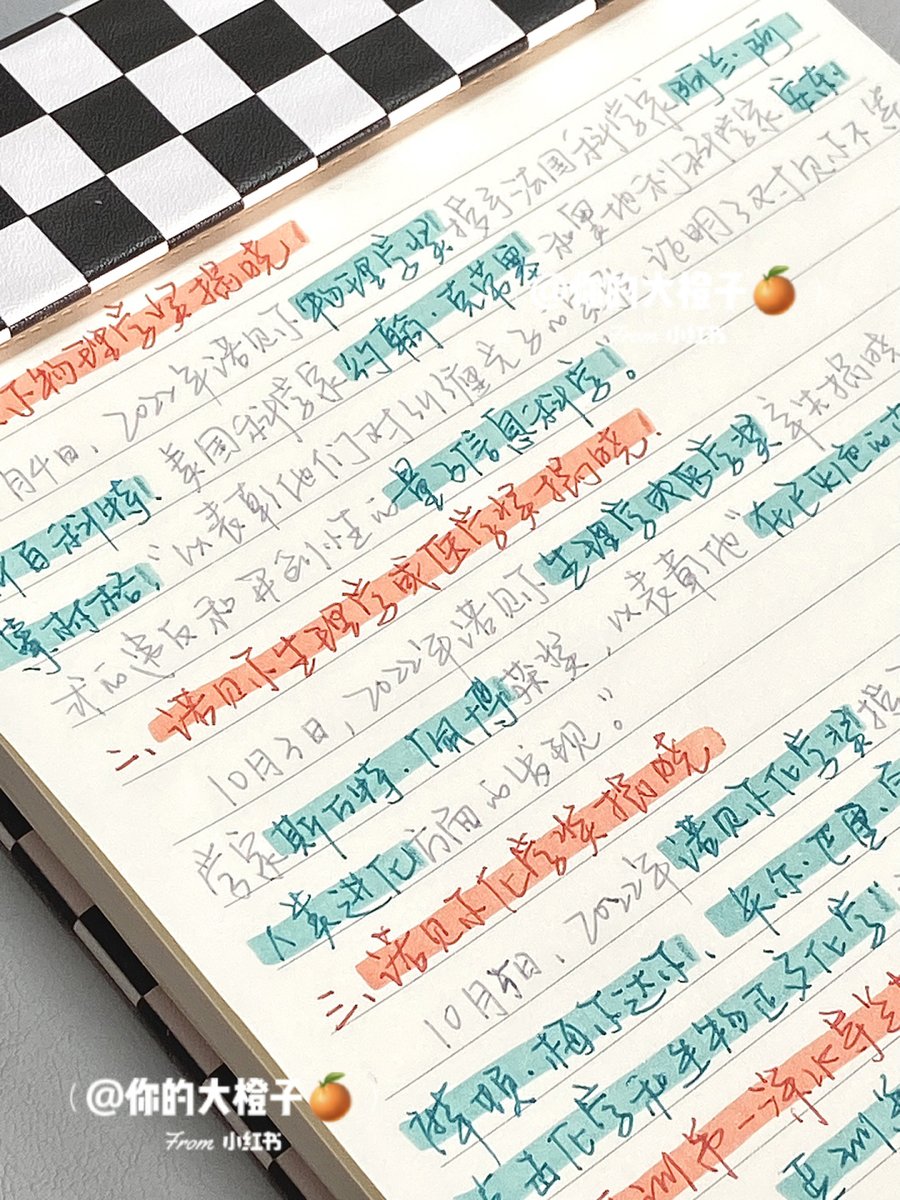 尔物理学奖揭晓
月4日，2022年诺贝尔物理学奖授予法国科学家阿兰·阿
斯佩科特，美国科学家约翰·克劳瑟和奥地利科学家安东
塞林格，“以表彰他们对纠缠光子的实验，证明了对贝尔不等
式的违反和开创性的量子信息科学。”
二、诺贝尔生理学或医学奖揭晓
10月3日，2022年诺贝尔生理学或医学奖率先揭晓
学家斯万特·佩博获奖，以表彰他“在已灭绝的
人类进化方面的发现。”
三、诺贝尔化学奖揭晓
10月5日，2022年诺贝尔化学奖授
摩顿·梅尔达尔、卡尔·巴里·
点击化学和生物正交化学”
洲第一
亚洲
@你的大橙子
From 小红书
@你的大橙子
From 小红书